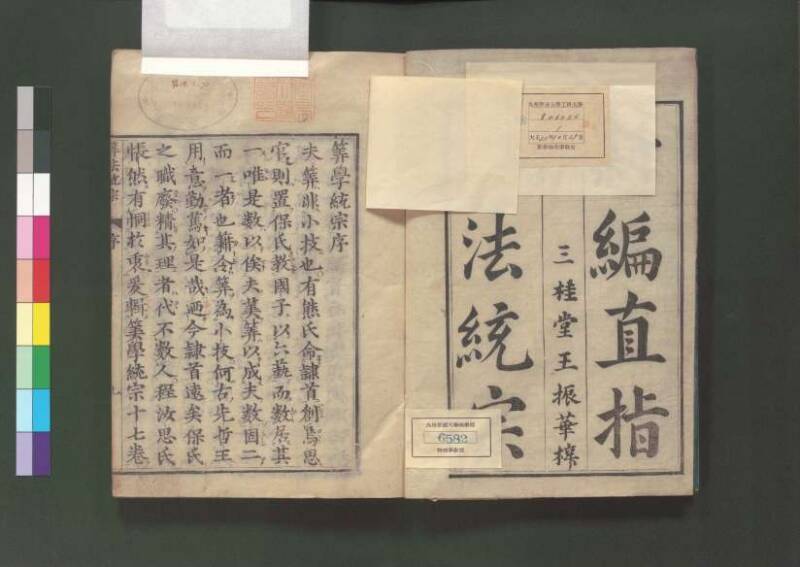 編直指
三桂堂王振華梓
法統宗
6582
筭學統宗序
夫筭非小技也有熊氏命隸首創焉思
官則置保氏教國子以六藝而數居其
一唯是數以俟夫筭筭以成夫數固二
而一者也藉令筭為小技何古先哲王
用意勤篤如是哉廼今隸首遠矣保氏
之職廢精其理者代不數人程汝思氏
悵然有恫於衷爰輯筭學統宗十七卷
算法統宗 序